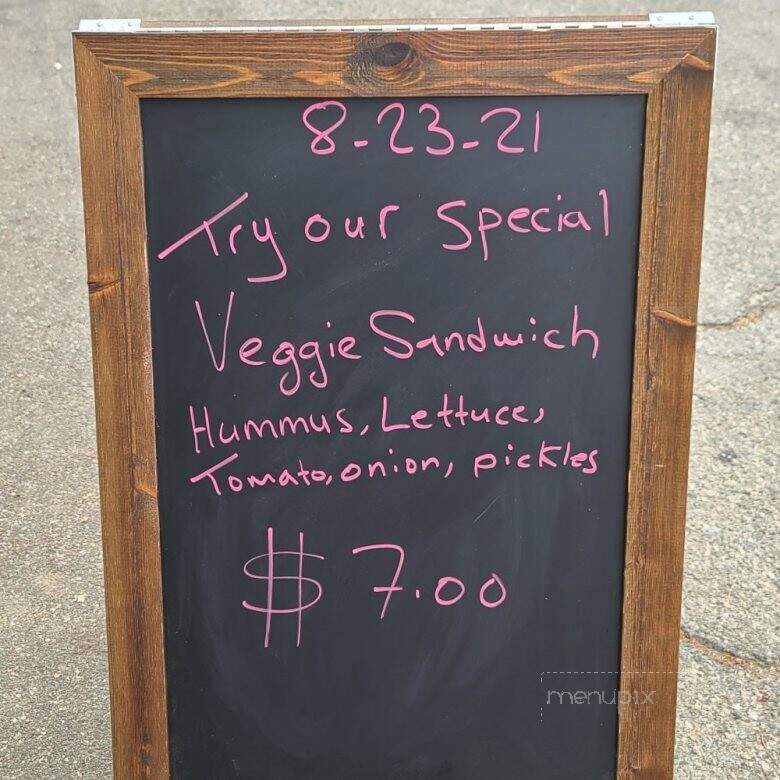 8-23-21
Try our special
Veggie Sandwich
Hummus, Lettuce,
Tomato, onion, pickles
$ 7.00
menupix